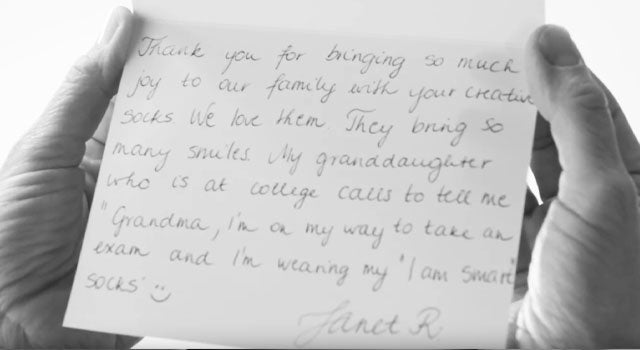 Thank you for bringing so much
joy to our family with your creative
socks We love them. They bring so
many smiles. My granddaughter
who is at college calls to tell me
"Grandma, i'm on my way to take an
exam and I'm wearing my "I am smart"
socks" :)
Janet R